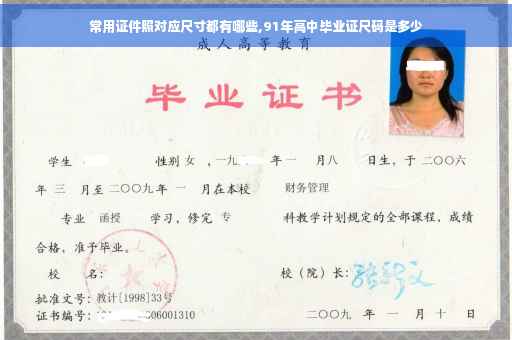 常用证件照对应尺寸都有哪些,91年高中毕业证尺码是多少
成人高等教育
毕业证书
学生 性别 女 ，一九 年 一 月八 日生，于 二〇〇六
年 三 月至 二〇〇九 年 一 月在本校 财务管理
专业 函授 学习，修完 专 科教学计划规定的全部课程，成绩
合格，准予毕业。
校 名： 校（院）长：
批准文号：教计[1998]33号
证书编号： 06001310 二〇〇九 年 一 月 十 日